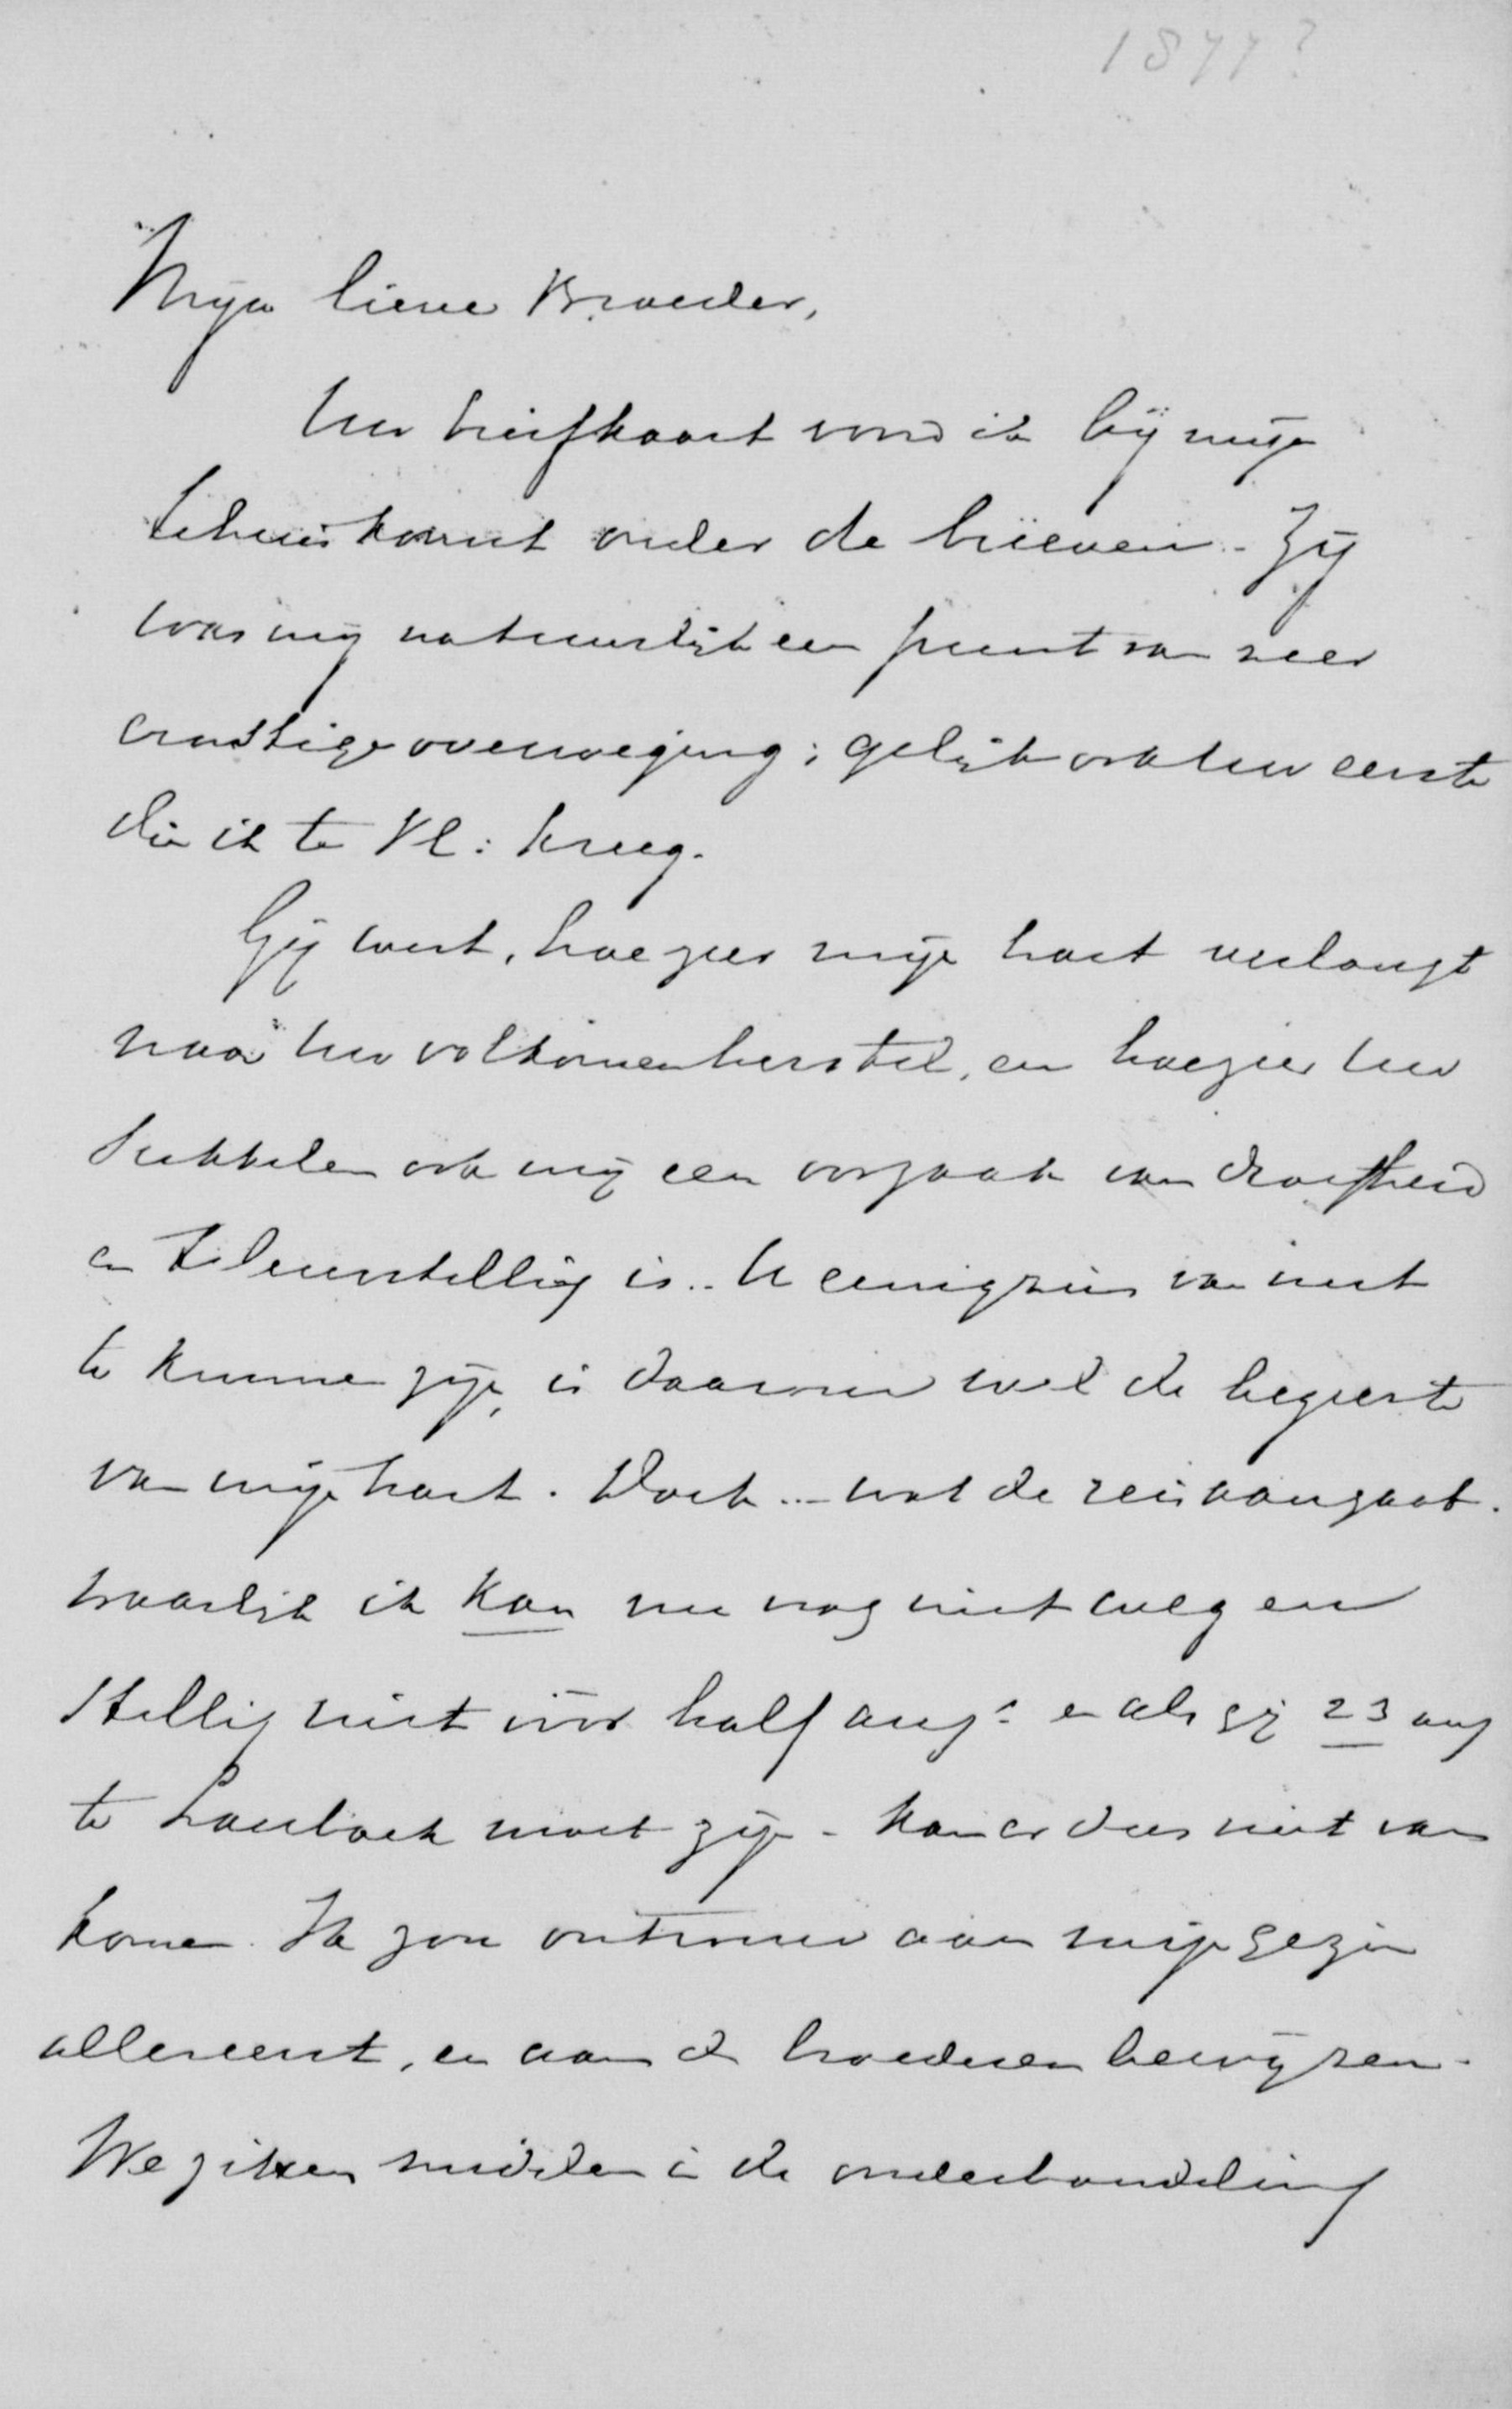 1877?
Mijn lieve Broeder,
Uw briefkaart vond ik bij mijn
tehuiskomst onder de brieven. Zij
was mij natuurlijk een punt van zeer
ernstige overweging; gelijk ook uw eerste
die ik te Vl: kreeg.
Gij weet, hoezeer mijn hart verlangt
naar uw volkomen herstel, en hoezeer uw
sukkelen ook mij een oorzaak van droefheid
en teleurstelling is.. U eenigzins van nut
te kunnen zijn, is daarom wel de begeerte
van mijn hart. Doch ... wat de reis aangaat.
waarlijk ik kan nu nog niet weg en
stellig niet vóór half aug: en als gij 23 aug
te moet zijn - kan er dus niet van
komen. Ik zou ontrouw aan mijn gezin
allereerst, en aan de broederen bewijzen.
We zitten midden in de onderhandeling